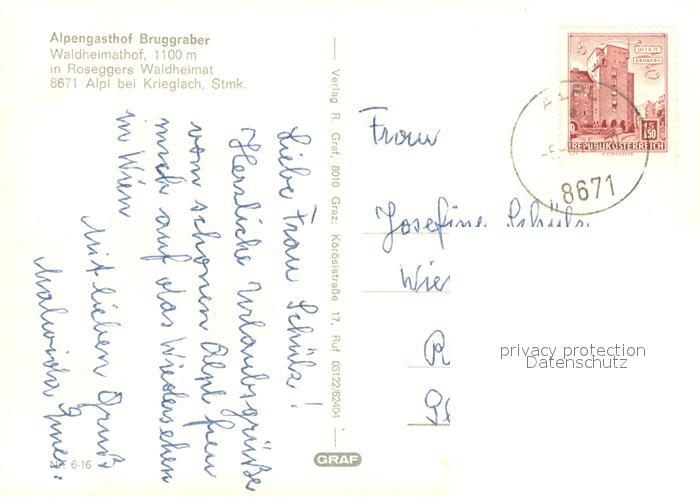 Alpengasthof Bruggraber
Waldheimathof, 1100 m
in Roseggers Waldheimat
8671 Alpl bei Krieglach, Stmk.
Liebe Frau Schülz!
Herzliche Urlaubsgrüße
vom schönen Alpl freu
mich auf das Wiedersehen
in Wien
Mit lieben Gruß
Malwida
Nr. 6-16
Verlag R. Graf, 8010 Graz, Körösistraße 17, Ruf 03122/82404
GRAF
WIEN
ERDBERG
S 1.50
REPUBLIK ÖSTERREICH
ALPL
8671
Frau
Josefine Schülz
Wien
privacy protection
Datenschutz